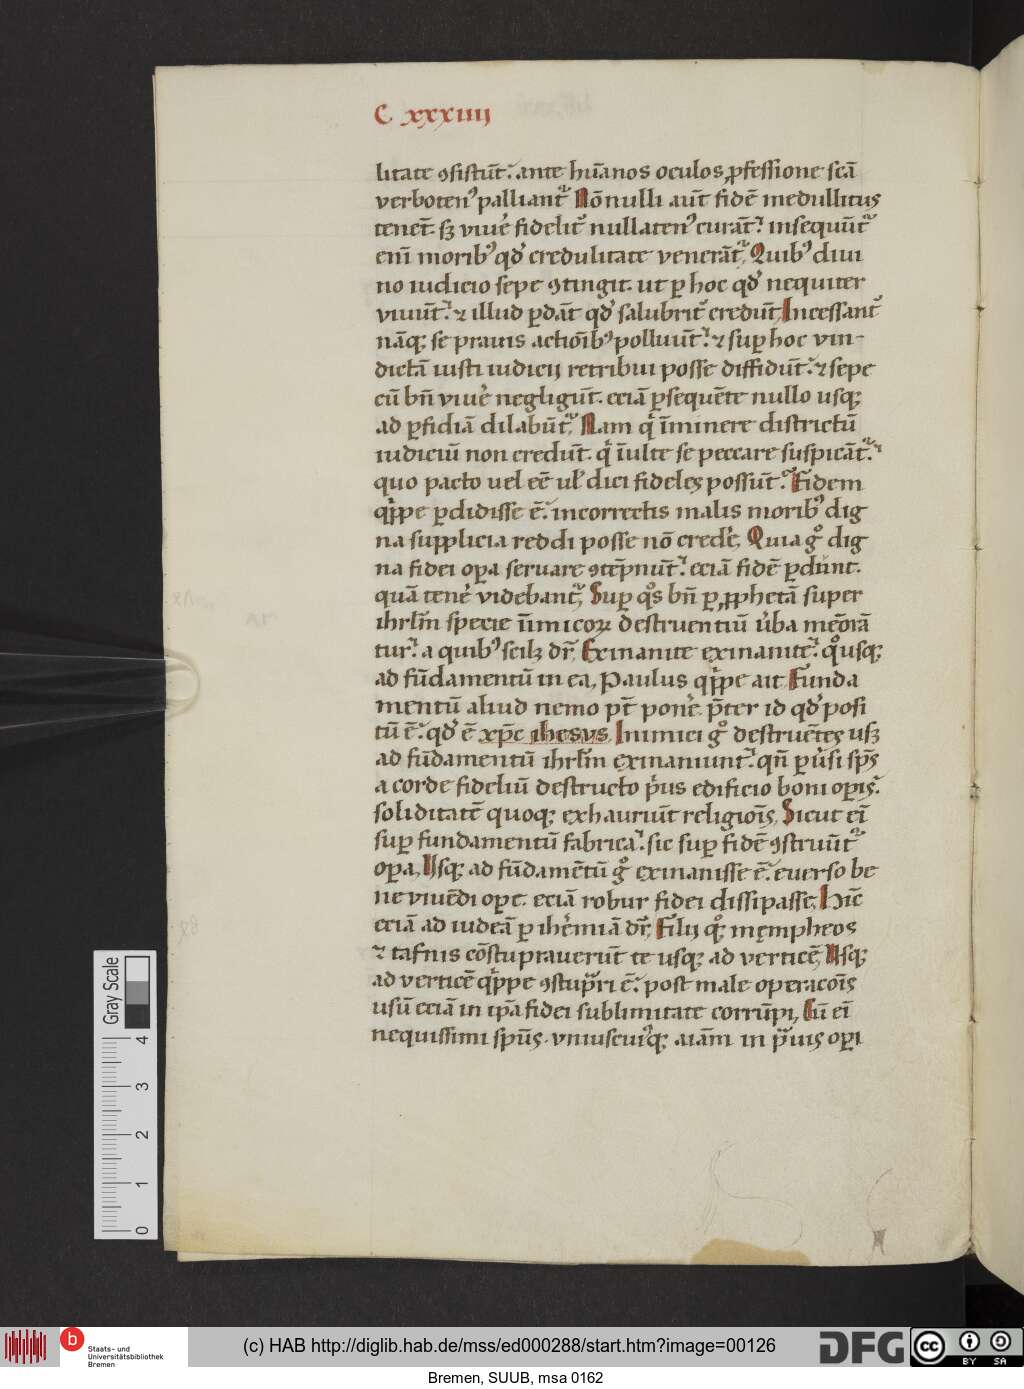 C xxxiiii
litate ꝯsistūt. ante hūanos oculos ꝓfessione scā
verboten᷒ palliant᷑ Nō nulli aut̄ fidē medullitus
tenēt. sꝫ viuē fidelit᷑ nullaten᷒ curāt. insequūt᷑
eni morib᷒ qd̓ credulitate venerāt᷑, Quib᷒ diui
no iudicio sepe ꝯtingit. ut ꝑ hoc qd̓ nequiter
viuūt. ⁊ illud ꝑdāt qd̓ salubrit᷑ credūt, Incessant᷑
nāqꝫ se prauis actiōib᷒ polluūt. ⁊ suꝑ hoc vin-
dictā iusti iudicij retribui posse diffidūt. ⁊ sepe
cū bn̄ viuē negligūt. eciā ꝑsequēte nullo usqꝫ
ad ꝑfidiā dilabūt᷑, Nam qͥ īminere districtū
iudiciū non credūt. qͥ īulte se peccare suspicāt᷑.
quo pacto uel eē ul̓ dici fideles possūt. Fidem
qͥppe ꝑdidisse ē. incorrectis malis morib᷒ dig
na supplicia reddi posse nō credē, Quia gͦ dig
na fidei oꝑa seruare ꝯtēpnūt. eciā fidē ꝑdunt.
quā tenē videbant᷑, Suꝑ qͦs bn̄ ꝑ ꝓphetā super
ihrl̄m specie īimicoꝝ destruentiū ūba memorā
tur. a quib᷒ scilꝫ dr̄, Exinanite exinanite. qͦusqꝫ
ad fūdamentū in ea, Paulus qͥppe ait Funda
mentū aliud nemo pt̄ ponē. p̄ter id qd̓ posi
tū ē. qd̓ ē xp̄c ihesvs, Inimici gͦ destruētes usqꝫ
ad fūdamentū ihrl̄m exinaniunt. qn̄ ꝑūsi sp̄s
a corde fideliū destructo pͥus edificio boni oꝑis.
soliditatē quoqꝫ exhauriūt religiois, Sicut ei
suꝑ fundamentū fabrica. sic suꝑ fidē ꝯstruūt᷑
oꝑa, Vsqꝫ ad fūdamētū gͦ exinanisse ē. euerso be
ne viuēdi oꝑe. eciā robur fidei dissipasse, Hic̄
eciā ad iudeā ꝑ ihēmiā dr̄, Filij qͦꝫ mempheos
⁊ tafnis cōstuprauerūt te usqꝫ ad verticē, Vsqꝫ
ad verticē qͥppe ꝯstupͣri ē. post male operacōis
usū eciā in ip̄a fidei sublimitate corrūpi, Cū ei
nequissimi spūs. vniuscuiꝯqꝫ aiām in pͣuis oꝑi
Gray Scale
0 1 2 3 4
b Staats- und
Universitätsbibliothek
Bremen
(c) HAB http://diglib.hab.de/mss/ed000288/start.htm?image=00126
DFG
cc BY SA
Bremen, SUUB, msa 0162